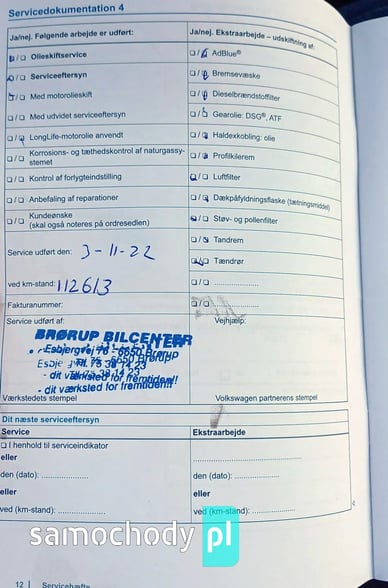 Servicedokumentation 4
Ja/nej. Følgende arbejde er udført:
Olieskiftservice
Serviceeftersyn
Med motorolieskift
Med udvidet serviceeftersyn
LongLife-motorolie anvendt
Korrosions- og tæthedskontrol af naturgassy-
stemet
Kontrol af forlygteindstilling
Anbefaling af reparationer
Kundeønske
(skal også noteres på ordresedlen)
Service udført den: 3-11-22
ved km-stand: 112613
Fakturanummer:
Service udført af:
BRØRUP BILCENTER
Esbjergvej 76 - 6650 Brørup
Tlf. 75 38 14 23
- dit værksted for fremtiden!!
- dit værksted for fremtiden!!
Værkstedets stempel
Ja/nej. Ekstraarbejde – udskiftning af:
AdBlue®
Bremsevæske
Dieselbrændstoffilter
Gearolie: DSG®, ATF
Haldexkobling: olie
Profilkilerem
Luftfilter
Dækpåfyldningsflaske (tætningsmiddel)
Støv- og pollenfilter
Tandrem
Tændrør
Vejhjælp:
Volkswagen partnerens stempel
Dit næste serviceeftersyn
Service
I henhold til serviceindikator
eller
den (dato): ....................
eller
ved (km-stand): ....................
Ekstraarbejde
den (dato): ....................
eller
ved (km-stand): ....................
samochody pl
12 | Servicehæfte